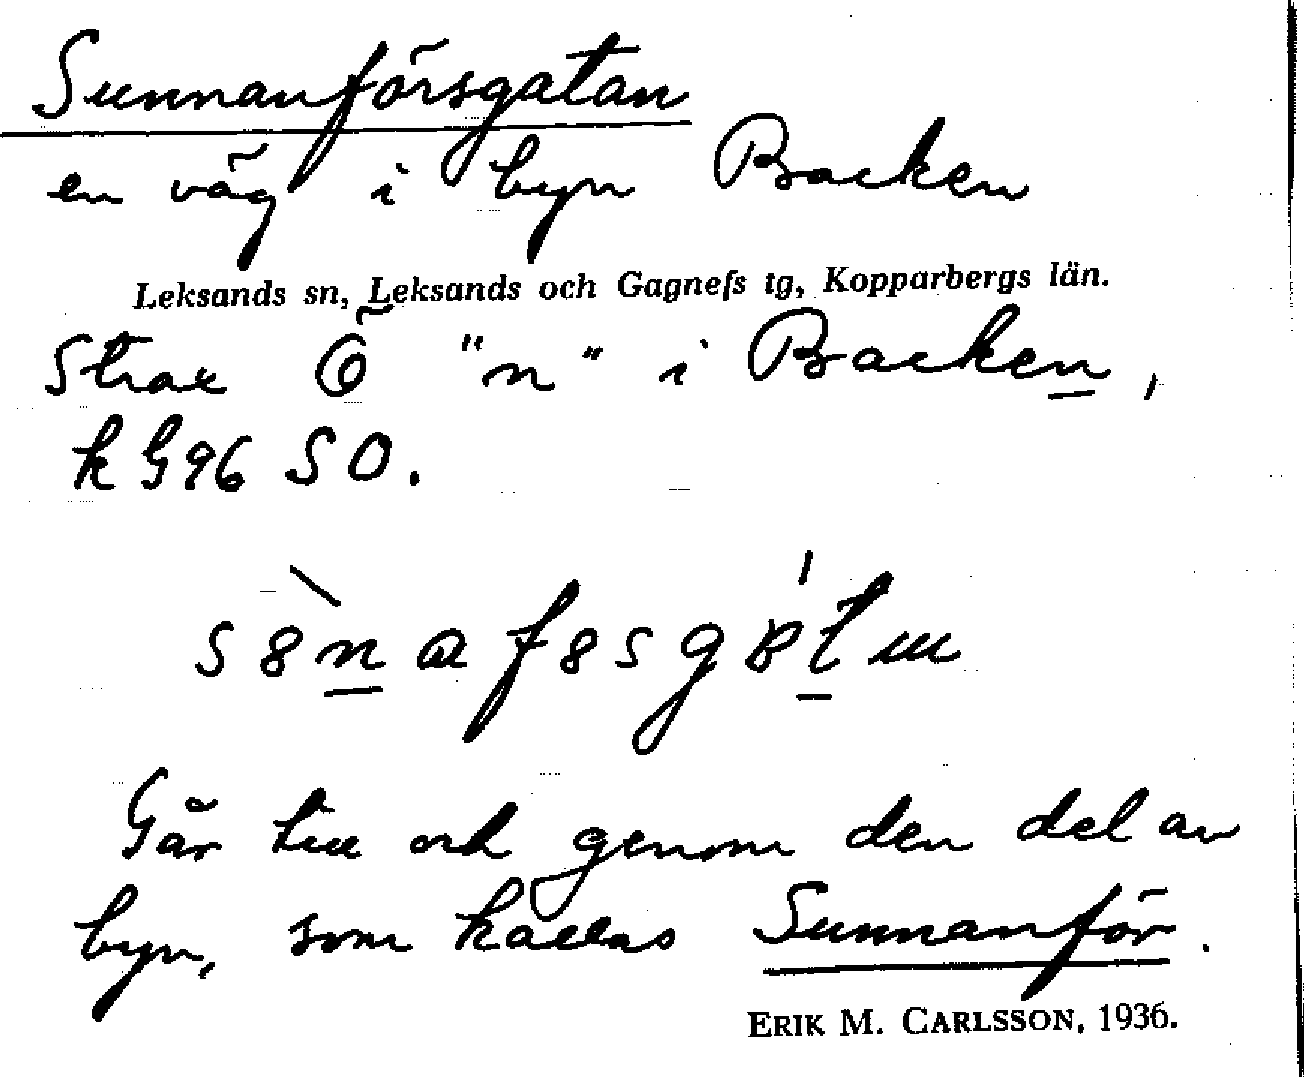 Sunnanförsgatan
en väg i byn Backen
Leksands sn, Leksands och Gagnefs tg, Kopparbergs län.
Strax Ö "n" i Backen,
k G96 SO.
Går till och genom den del av
byn, som kallas Sunnanför.
ERIK M. CARLSSON, 1936.